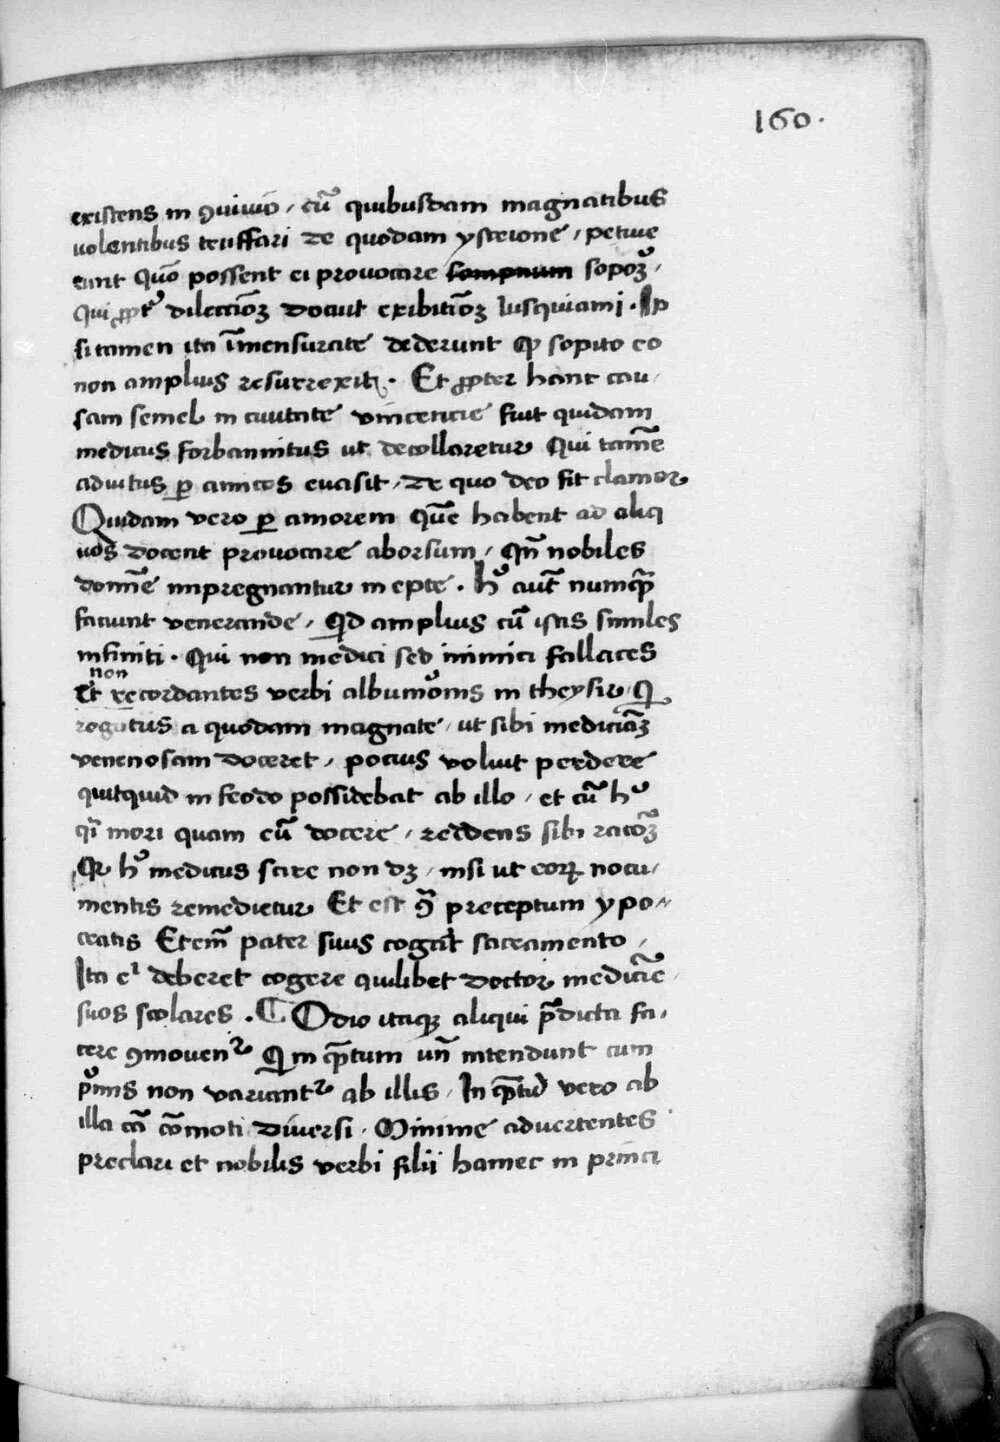 160.
existens in ꝯuiuio, cũ quibusdam magnatibus
uolentibus truffari de quodam ystrione, petiue
runt quō possent ei prouocare sompnum sopoꝝ,
Qui ꝓpt᷑ dilectiōꝫ docuit exibitiōꝫ Iusquiami. Ip
si tamen ita ĩmensurate dederunt ꝙ sopito eo
non amplius resurrexit. Et ꝓpter hanc cau,
sam semel in ciuitate vincencie fuit quidam
medicus forbannitus ut decollaretur Qui tamẽ
adiutus ꝑ amicos euasit, de quo deo sit clamor
Quidam vero ꝑ amorem quẽ habent ad aliq
uos docent prouocare aborsum, Qñ nobiles
domnẽ impregnantur inepte. hͦ aut̃ numqᷓ
faciunt venerande, Qd amplius cũ istis similes
infiniti. Qui non medici sed inimici fallaces
non
Et recordantes verbi albumōnis in theysir Q
rogatus a quodam magnate, ut sibi mediciāꝫ
venenosam doceret, pocius voluit perdere
quitquid in feodo possidebat ab illo, et cũ hͦ
qͥ mori quam eũ docere, reddens sibi ratōꝫ
Qr hͦ medicus scire non dꝫ, nisi ut eorꝝ nocu,
mentis remedietur Et est ꝯᷓ preceptum ypo
cratis Etem̃ pater suus cogeƀt sacramento,
Ita eͥ deberet cogere quilibet doctor medicĩe,
suos scolares. ¶ Odio itaqꝫ aliqui p̃dicta fa,
cere ꝯmouenᷣ Q in qᷓtum uñ intendunt cum
pͦmis non variantᷣ ab illis, In qᷓtuꝫ vero ab
illa cã cōmoti diuersi. Minime aduertentes
preclari et nobilis verbi filii hamec in princi